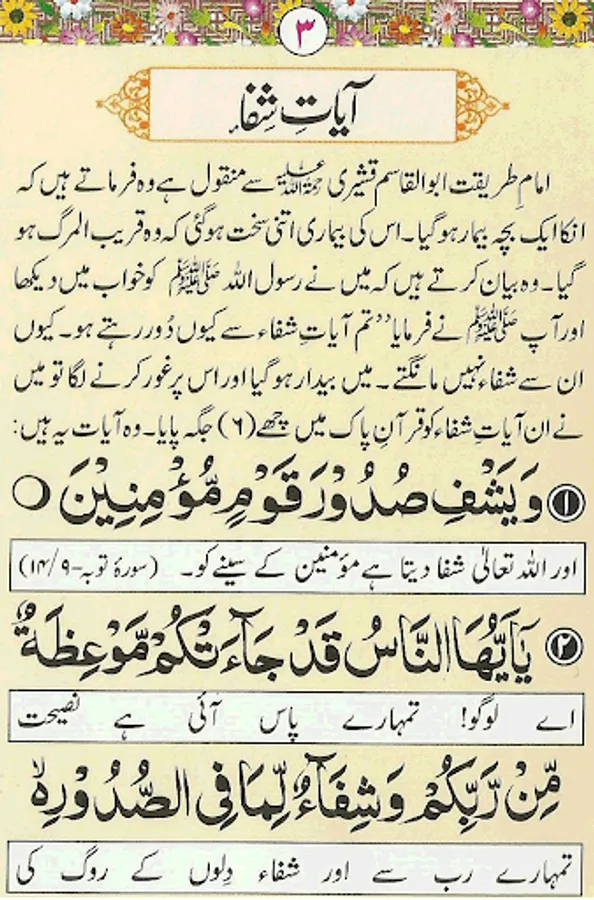 ۳
آیاتِ شِفاء
امامِ طریقت ابوالقاسم قشیری رحمۃ اللہ علیہ سے منقول ہے وہ فرماتے ہیں کہ
انکا ایک بچہ بیمار ہوگیا۔ اس کی بیماری اتنی سخت ہوگئی کہ وہ قریب المرگ ہو
گیا۔ وہ بیان کرتے ہیں کہ میں نے رسول اللہ ﷺ کو خواب میں دیکھا
اور آپ ﷺ نے فرمایا ”تم آیاتِ شفاء سے کیوں دُور رہتے ہو۔ کیوں
ان سے شفاء نہیں مانگتے۔ میں بیدار ہوگیا اور اس پر غور کرنے لگا تو میں
نے ان آیاتِ شفاء کو قرآنِ پاک میں چھے (۶) جگہ پایا۔ وہ آیات یہ ہیں:
۱ وَيَشْفِ صُدُوْرَ قَوْمٍ مُّؤْمِنِيْنَ ○
اور اللہ تعالیٰ شفا دیتا ہے مؤمنین کے سینے کو۔ (سورۂ توبہ-۱۴/۹)
۲ يٰٓاَيُّهَا النَّاسُ قَدْ جَآءَتْكُمْ مَّوْعِظَةٌ
اے لوگو! تمہارے پاس آئی ہے نصیحت
مِّنْ رَّبِّكُمْ وَشِفَآءٌ لِّمَا فِى الصُّدُوْرِ
تمہارے رب سے اور شفاء دِلوں کے روگ کی